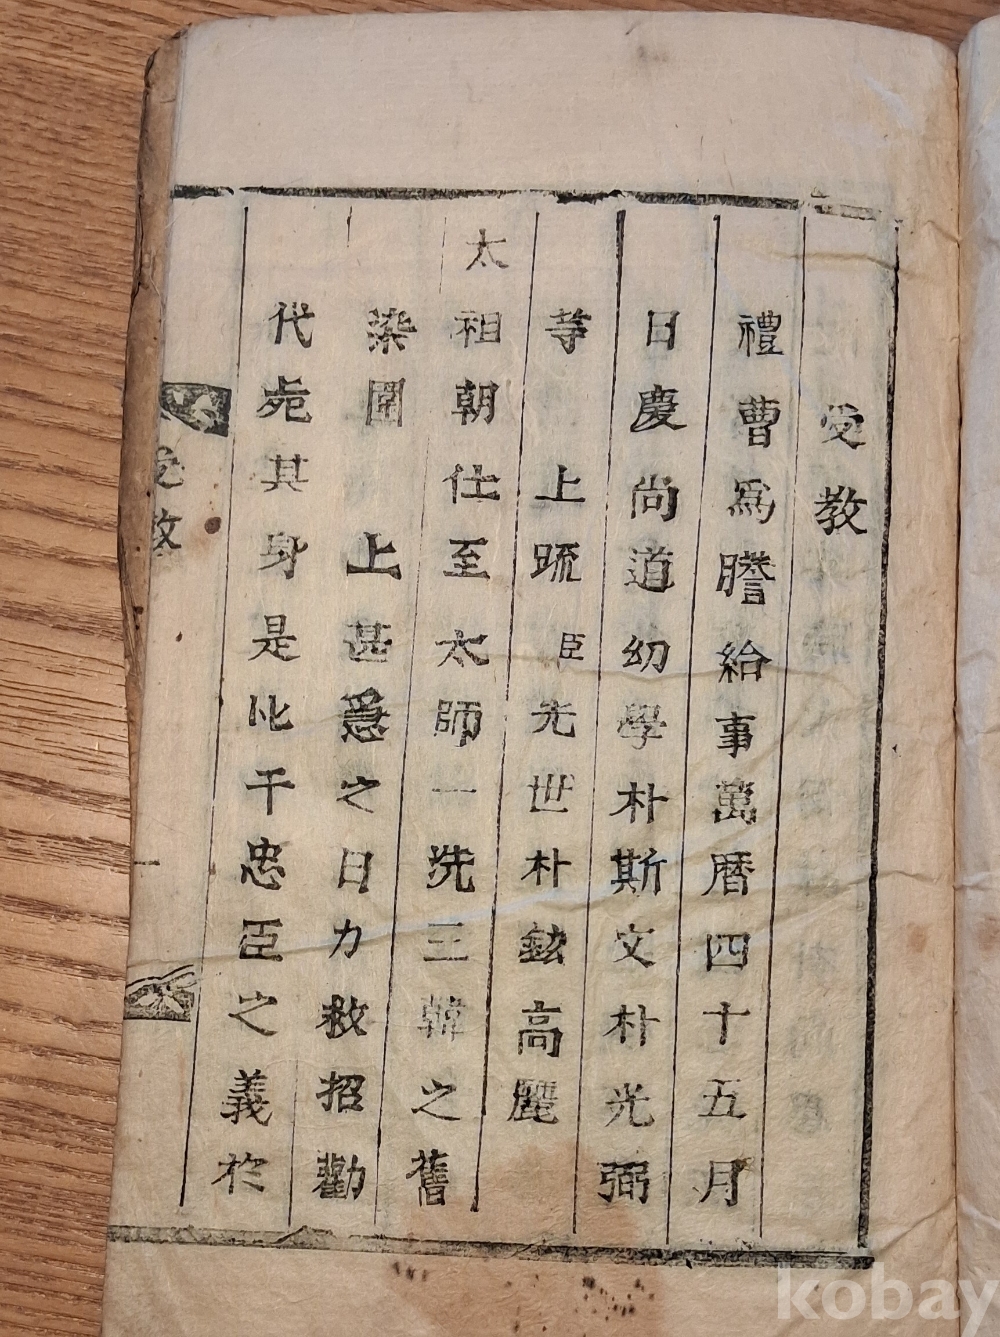 受教
禮曹爲謄給事萬曆四十五月
日慶尚道幼學朴斯文朴光弼
等上疏臣先世朴鉉高麗
太祖朝仕至太師一洗三韓之舊
染圍上甚爲之日力救招勸
代死其身是比干忠臣之義於
受教
一
kobay